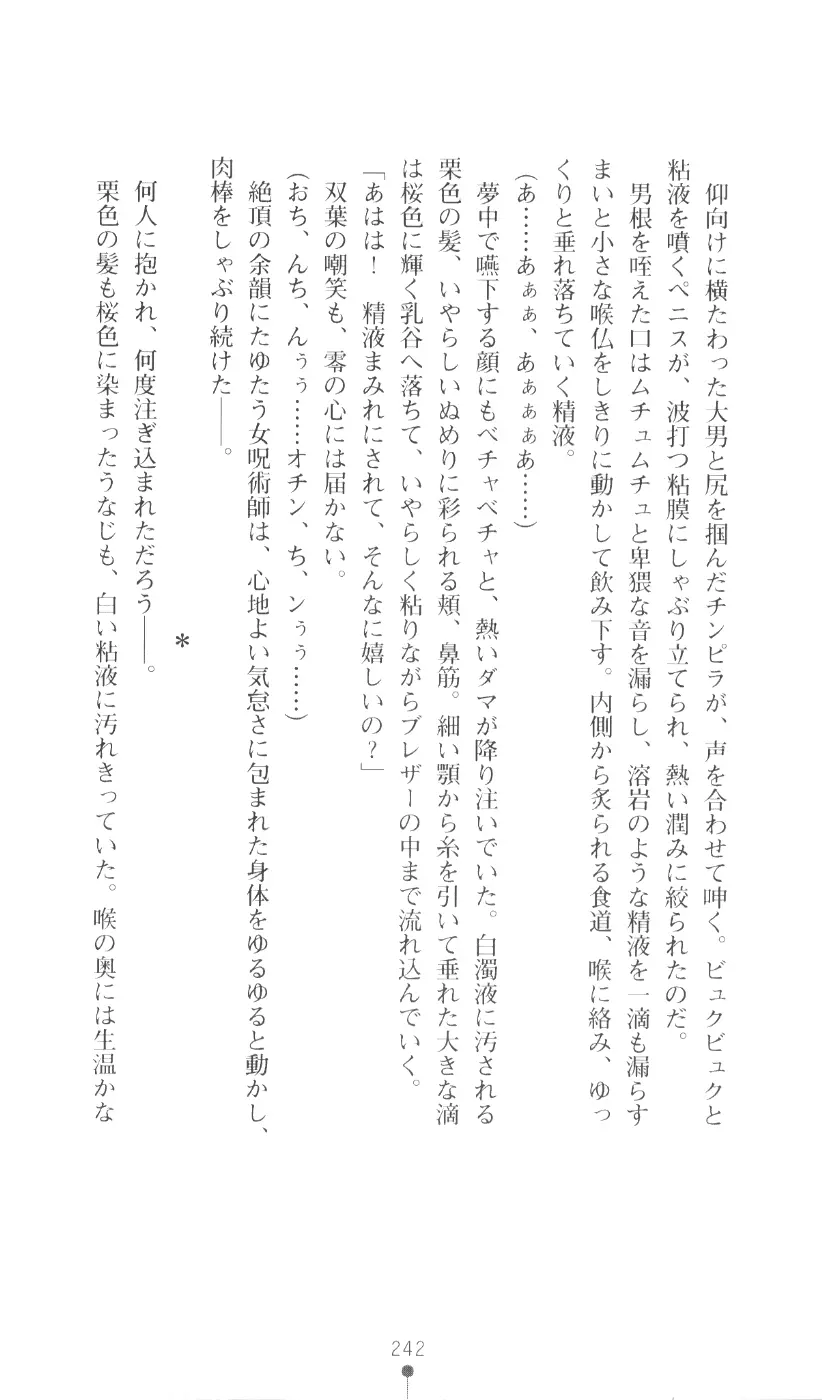 仰向けに横たわった大男と尻を掴んだチンピラが、声を合わせて呻く。ビュクビュクと
粘液を噴くペニスが、波打つ粘膜にしゃぶり立てられ、熱い潤みに絞られたのだ。
男根を咥えた口はムチュムチュと卑猥な音を漏らし、溶岩のような精液を一滴も漏らす
まいと小さな喉仏をしきりに動かして飲み下す。内側から炙られる食道、喉に絡み、ゆっ
くりと垂れ落ちていく精液。
(あ……あぁぁ、あぁぁぁあ……)
夢中で嚥下する顔にもベチャベチャと、熱いダマが降り注いでいた。白濁液に汚される
栗色の髪、いやらしいぬめりに彩られる頬、鼻筋。細い顎から糸を引いて垂れた大きな滴
は桜色に輝く乳谷へ落ちて、いやらしく粘りながらブレザーの中まで流れ込んでいく。
「あはは！　精液まみれにされて、そんなに嬉しいの？」
双葉の嘲笑も、零の心には届かない。
(おち、んち、んぅぅ……オチン、ち、ンぅぅ……)
絶頂の余韻にたゆたう女呪術師は、心地よい気怠さに包まれた身体をゆるゆると動かし、
肉棒をしゃぶり続けた――。
＊
何人に抱かれ、何度注ぎ込まれただろう――。
栗色の髪も桜色に染まったうなじも、白い粘液に汚れきっていた。喉の奥には生温かな
242